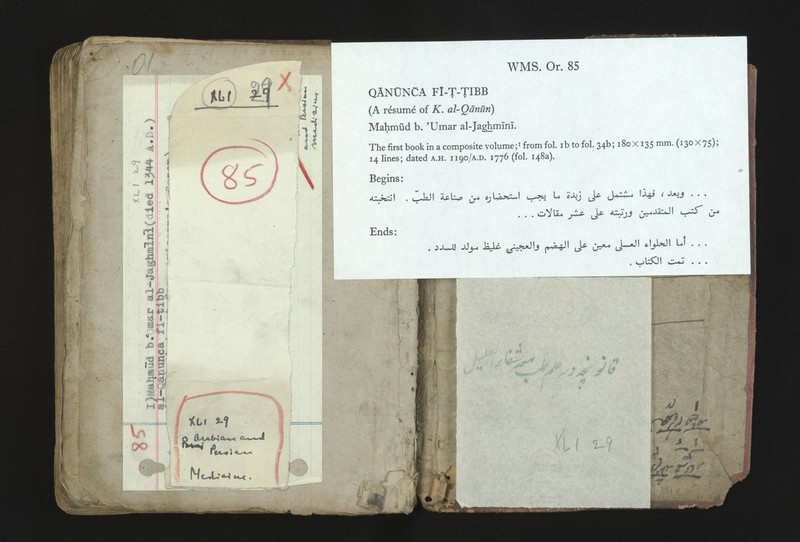 01
XLI 29
X
and Persian
medicine
85
XLI 29
I) Maḥmūd b. ʿUmar al-Jaghmīnī (died 1344 A.D.)
al-Qānūnča fī-ṭibb
85
XLI 29
Arabian and
Persian
Medicine.
WMS. Or. 85
QĀNŪNČA FĪ-Ṭ-ṬIBB
(A résumé of K. al-Qānūn)
Maḥmūd b. ʿUmar al-Jaghmīnī.
The first book in a composite volume;¹ from fol. 1b to fol. 34b; 180×135 mm. (130×75);
14 lines; dated A.H. 1190/A.D. 1776 (fol. 148a).
Begins:
... وبعد، فهذا مشتمل على زبدة ما يجب استحضاره من صناعة الطبّ. انتخبته
من كتب المتقدمين ورتبته على عشر مقالات...
Ends:
... أما الحلواء العسلى معين على الهضم والعجينى غليظ مولد للسدد.
... تمت الكتاب.
قانونچه در علم طب
XLI 29